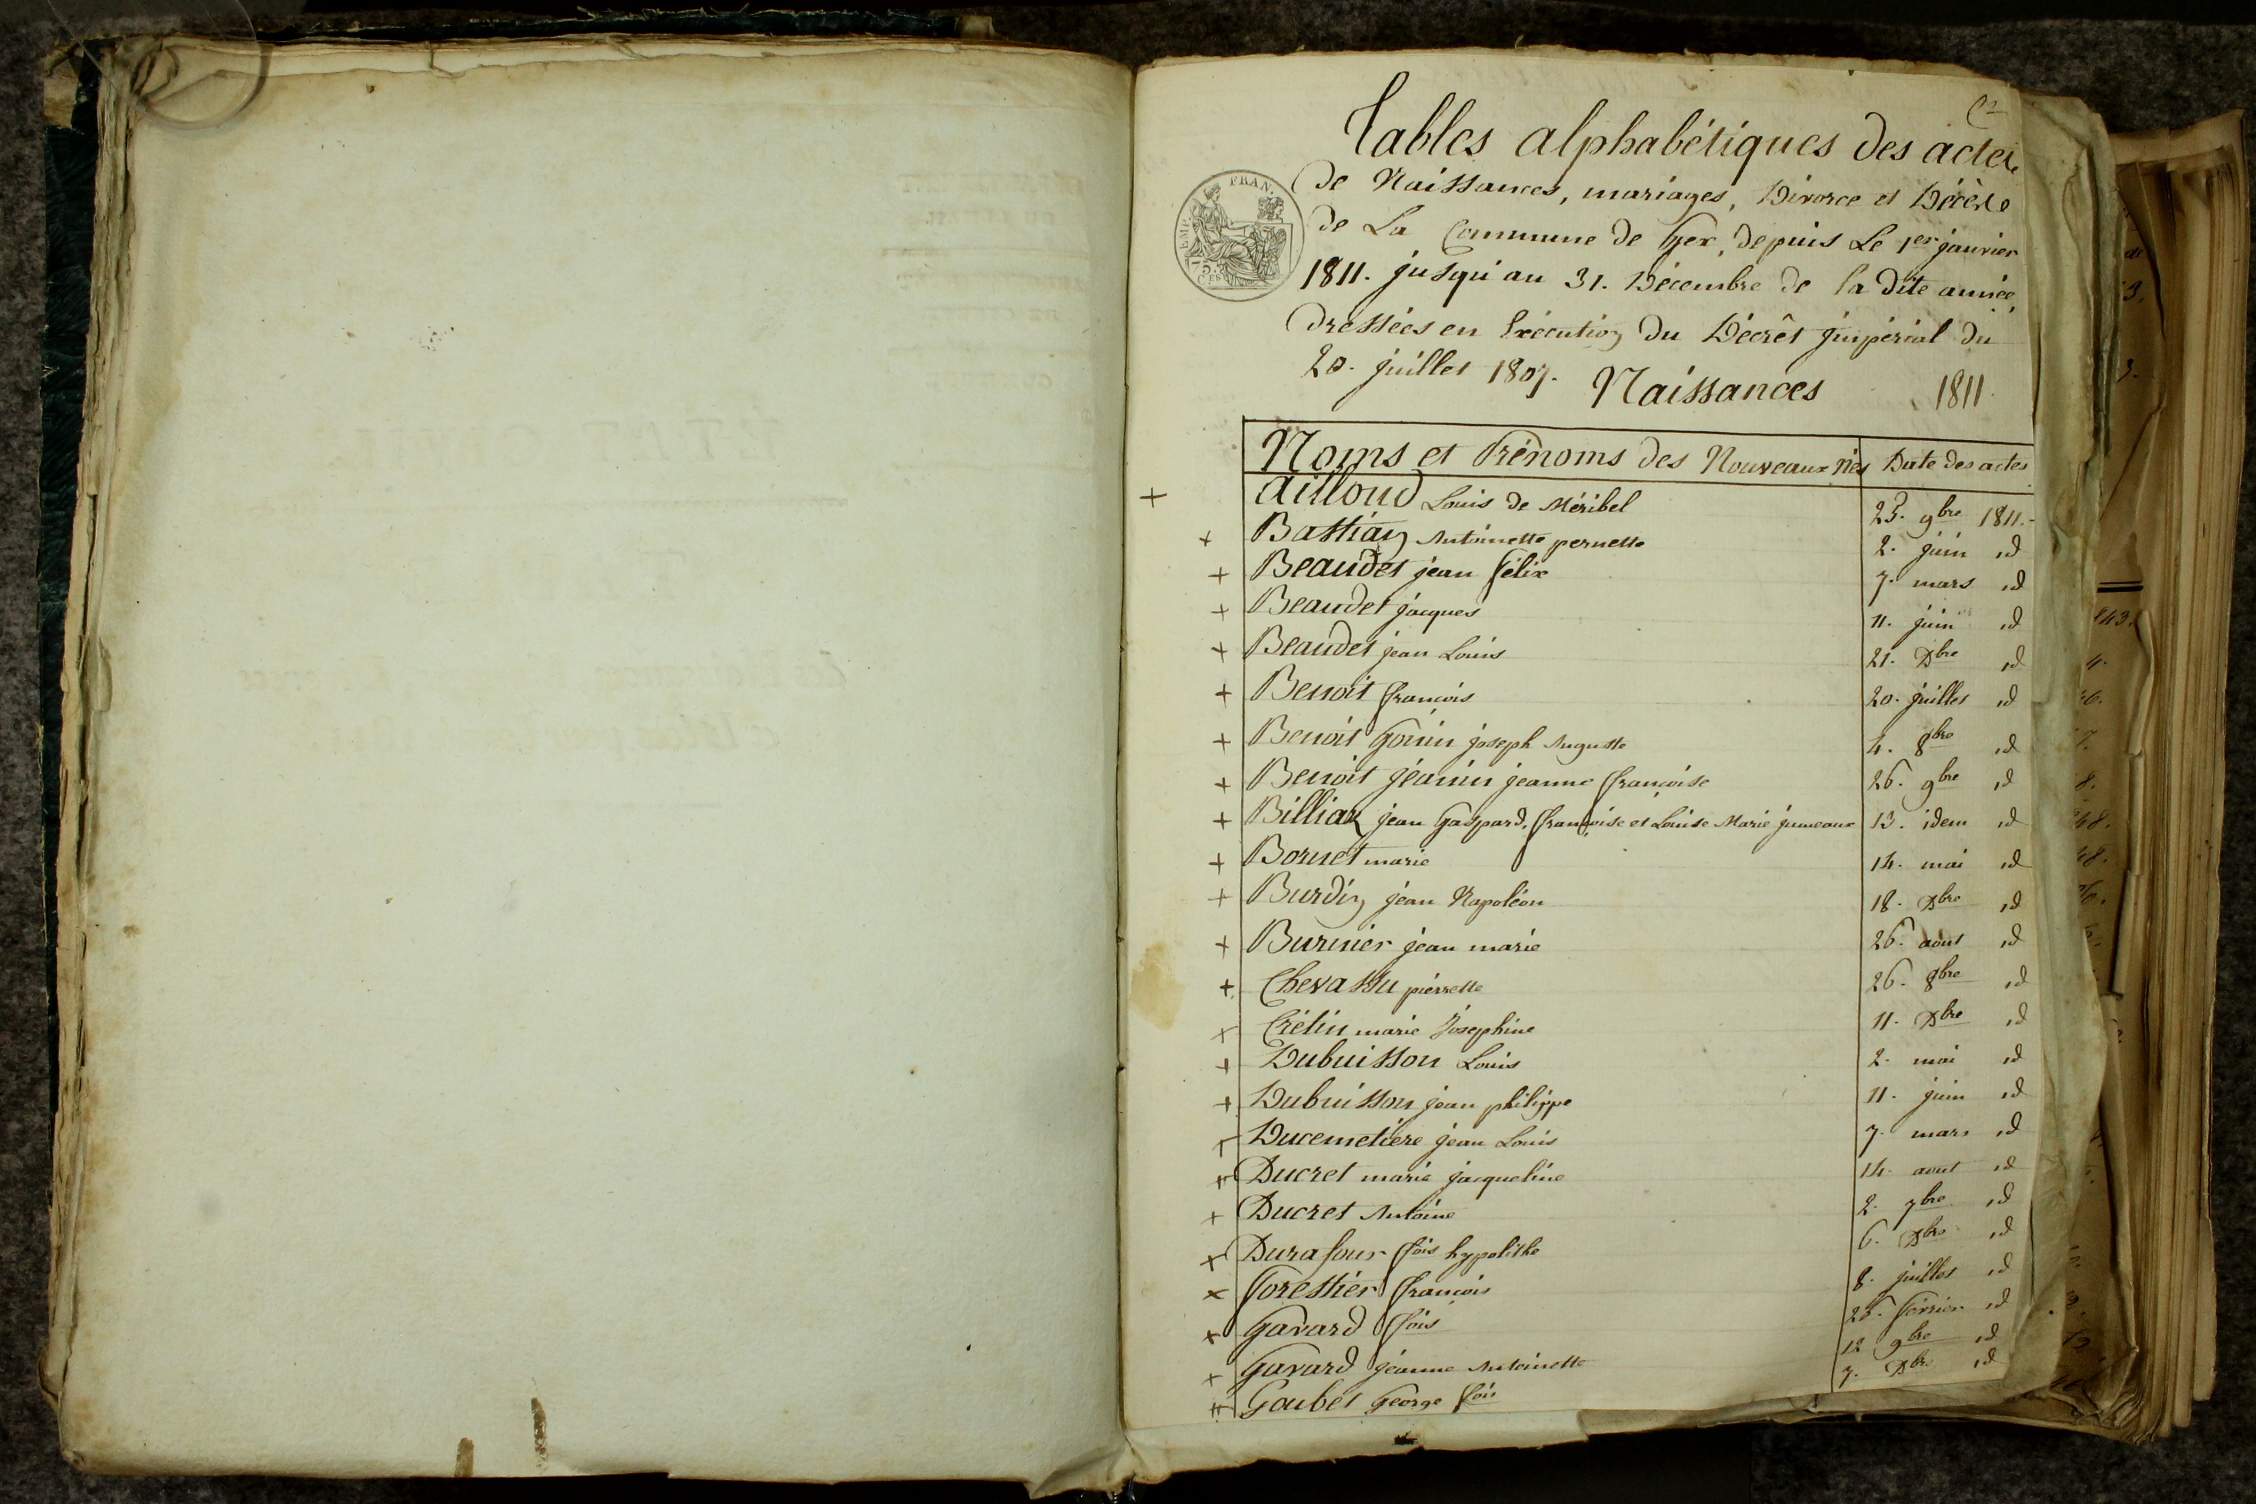 Tables alphabétiques des actes
de Naissances, mariages, Divorce et Décès
de La Commune de Gex, depuis Le 1er janvier
1811. jusqu'au 31. Décembre de la dite année,
dressées en Exécution du Décrêt jmpérial du
20. juillet 1807. Naissances 1811.
EMP. FRAN.
Noms et Prénoms des Nouveaux nés Date des actes
+ ailloud Louis de Méribel 23. 9bre 1811.
+ Bastian Antoinette pernette 2. juin id
+ Beaudet jean félix 7. mars id
+ Beaudet jacques 11. juin id
+ Beaudet jean Louis 21. Dbre id
+ Benoit françois 20. juillet id
+ Benoit Gonin joseph Auguste 4. 8bre id
+ Benoit jeanin jeanne françoise 26. 9bre id
+ Billiax jean Gaspard, françoise et Louise Marie jumeaux 13. idem id
+ Bornet marie 14. mai id
+ Burdin jean Napoléon 18. Dbre id
+ Burnier jean marie 26. aout id
+ Chevassu pierrette 26. 8bre id
+ Crétin marie Josephine 11. Dbre id
+ Dubuisson Louis 2. mai id
+ Dubuisson jean philippe 11. juin id
+ Ducemetière jean Louis 7. mars id
+ Ducret marie jacqueline 14. aout id
+ Ducret Antoine 2. 7bre id
+ Durafour fois hypolithe 6. Dbre id
+ forestier françois 8. juillet id
+ Gavard fois 25. février id
+ Gavard jeanne Antoinette 12 9bre id
+ Goubet George fois 7. Dbre id